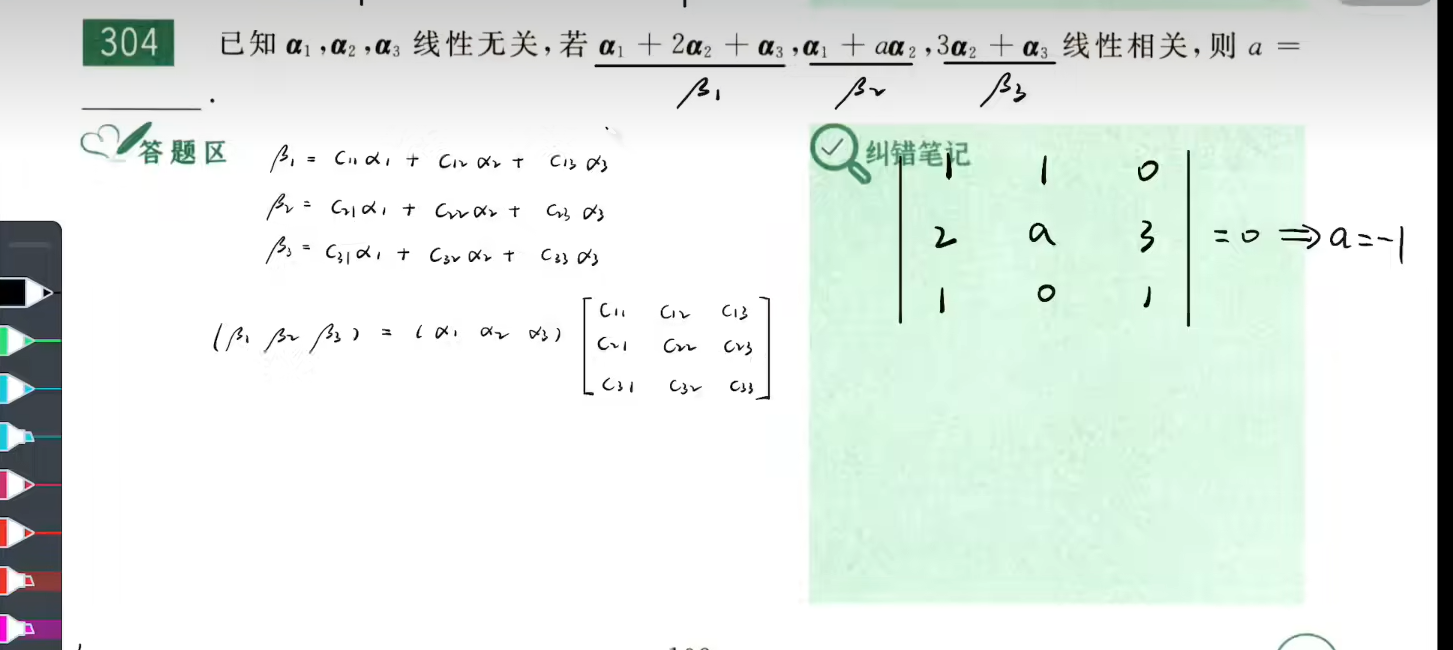 304 已知 α₁,α₂,α₃ 线性无关,若 α₁ + 2α₂ + α₃,α₁ + aα₂,3α₂ + α₃ 线性相关,则 a =
______.
β₁ β₂ β₃
答题区
β₁ = C₁₁α₁ + C₁₂α₂ + C₁₃α₃
β₂ = C₂₁α₁ + C₂₂α₂ + C₂₃α₃
β₃ = C₃₁α₁ + C₃₂α₂ + C₃₃α₃
(β₁ β₂ β₃) = (α₁ α₂ α₃)
C₁₁ C₁₂ C₁₃
C₂₁ C₂₂ C₂₃
C₃₁ C₃₂ C₃₃
纠错笔记
1 1 0
2 a 3 = 0 ⇒ a = -1
1 0 1